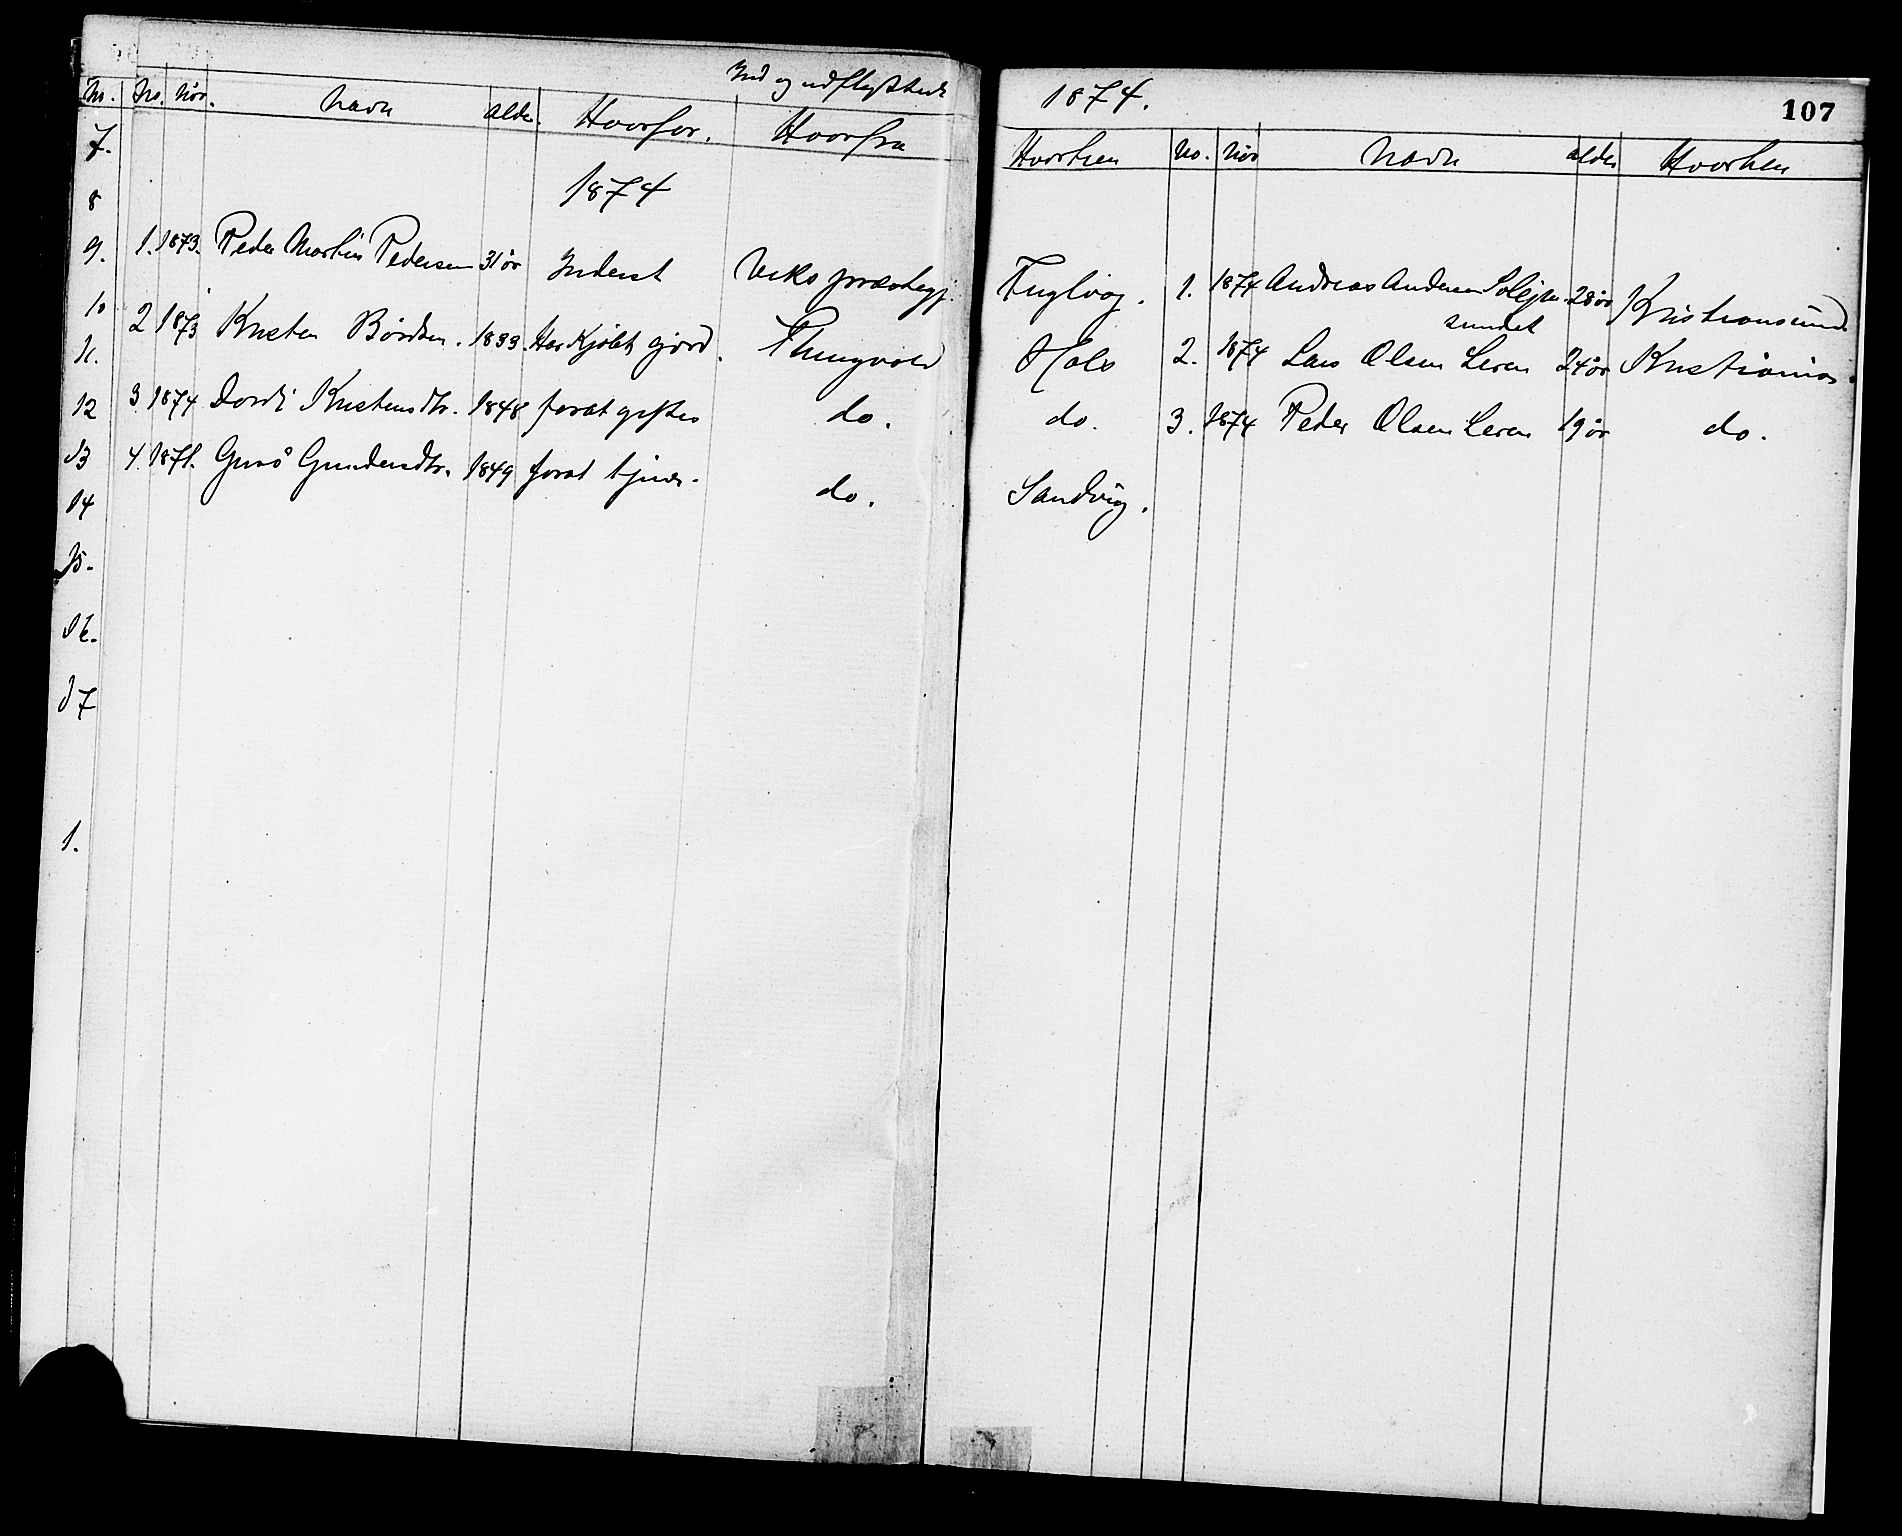 Ind og udflyttede 1874.
107
No. No. Naar. Navn Alder. Hvorfor. Hvorfra Hvorhen No. Naar Navn Alder Hvorhen
7.
1874
8
9. 1. 1873. Peder Martin Pedersen 31 år Inderst Veks præstegj. Fuglvag. 1. 1874 Andreas Andersen Solejm- 28 år Kristiansund
sundet
10
11. 2 1873 Kristen Bårdsen. 1833. Har Kjöbt gård. Thingvold Hals 2. 1874 Lars Olsen Leren 24 år Kristiania.
12 3 1874 Dordi Kristensdtr. 1848 forat giftes do. do. 3. 1874 Peder Olsen Leren 19 år do.
13 4. 1871. Guro Gundersdtr. 1849 forat tjene. do. Sandvig.
14
15.
16.
17
1.